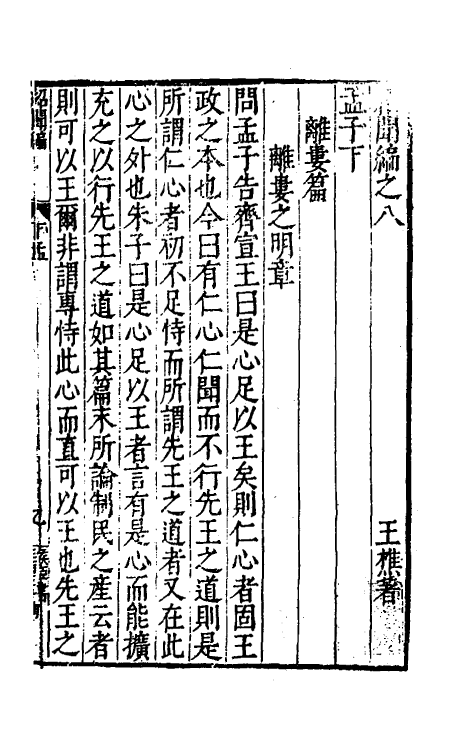 聞編之八
王樵著
孟子下
離婁篇
離婁之明章
問孟子告齊宣王曰是心足以王矣則仁心者固王
政之本也今曰有仁心仁聞而不行先王之道則是
所謂仁心者初不足恃而所謂先王之道者又在此
心之外也朱子曰是心足以王者言有是心而能擴
充之以行先王之道如其篇末所論制民之産云者
則可以王爾非謂專恃此心而直可以王也先王之
紹聞編
下孟